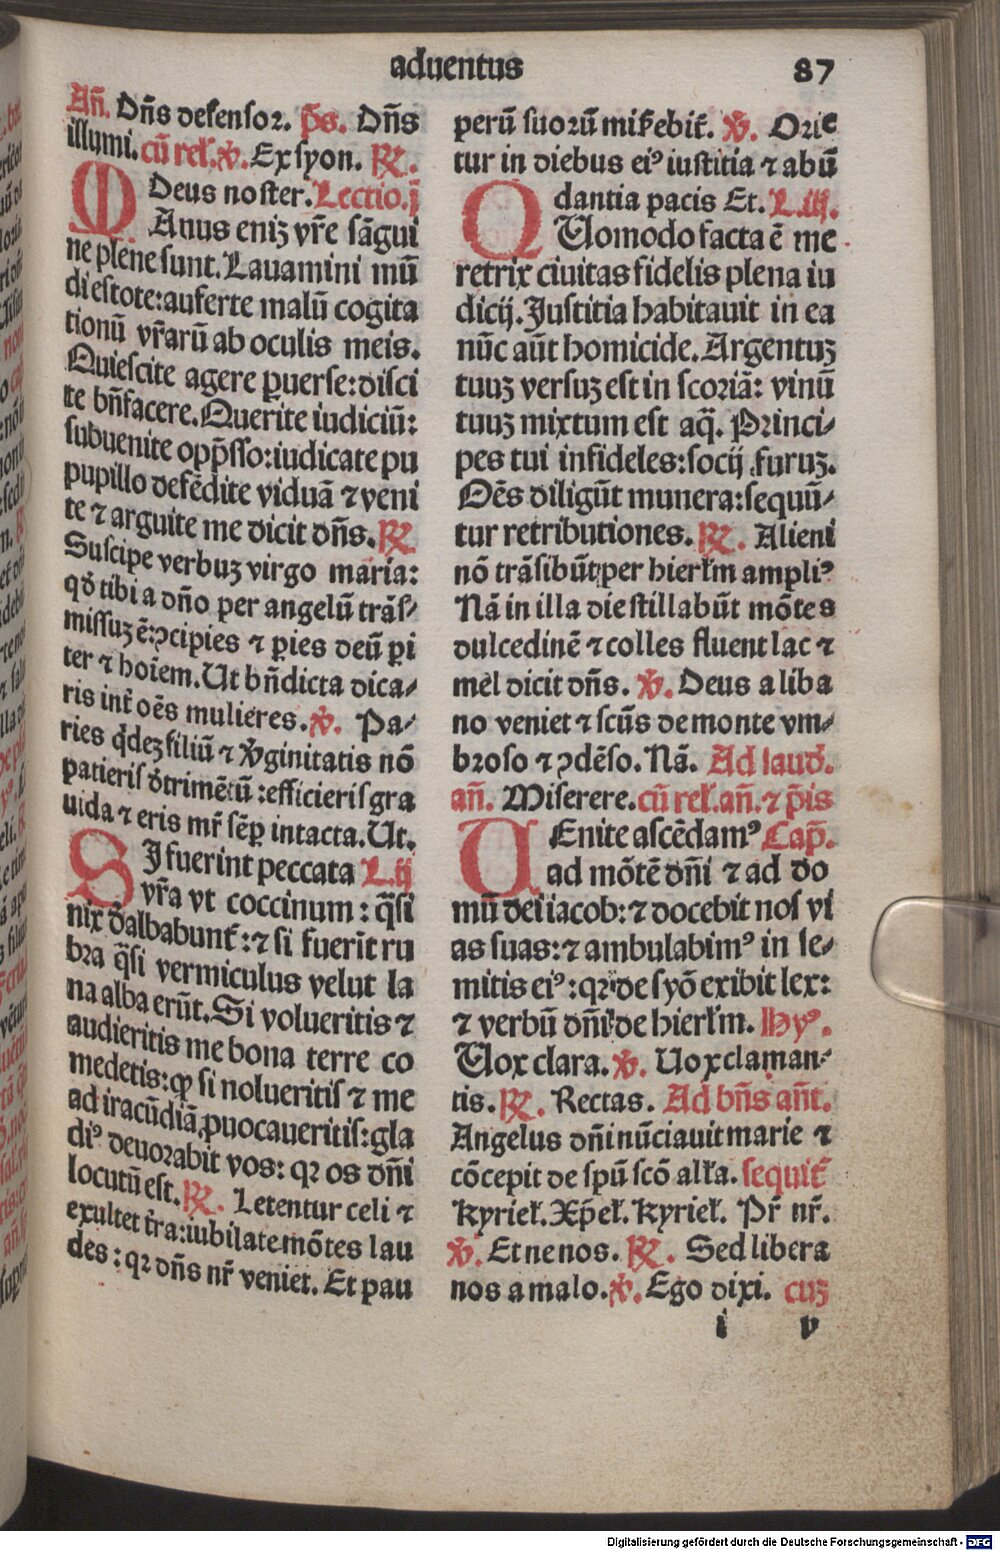 aduentus 87
Añ. Dñs defensor. p̄s. Dñs
illumi. cū rel̄. ℣. Ex syon. ℟.
Deus noster. Lectio. j
MAnus eniʒ vr̄e sāgui
ne plene sunt. Lauamini mū
di estote: auferte malū cogita
tionū vr̄arū ab oculis meis.
Quiescite agere ꝑuerse: disci
te bn̄facere. Querite iudiciū:
subuenite opp̄sso: iudicate pu
pupillo defēdite viduā ⁊ veni
te ⁊ arguite me dicit dn̄s. ℟
Suscipe verbuʒ virgo maria:
qđ tibi a dn̄o per angelū trās⸗
missuʒ ē: ꝯcipies ⁊ paries deū pi
ter ⁊ hoīem. Ut bn̄dicta dica⸗
ris int̄ oēs mulieres. ℣. Pa⸗
ries q̇deʒ filiū ⁊ v̓ginitatis nō
patieris đtrimētū: efficieris gra
uida ⁊ eris mr̄ sēꝑ intacta. Ut.
SI fuerint peccata L. ij
vr̄a vt coccinum: q̄si
nix đalbabunt̄: ⁊ si fuerīt ru
bra q̄si vermiculus velut la
na alba erūt. Si volueritis ⁊
audieritis me bona terre co
medetis: qꝫ si nolueritis ⁊ me
ad iracūdiā ꝓuocaueritis: gla
diꝰ deuorabit vos: qꝛ os dn̄i
locutū est. ℟. Letentur celi ⁊
exultet t̄ra: iubilate mōtes lau
des: qꝛ dn̄s nr̄ veniet. Et pau
perū suorū mis̄ebit̄. ℣. Orie
tur in diebus eiꝰ iustitia ⁊ abū
dantia pacis Et. L. iij.
QUomodo facta ē me
retrix ciuitas fidelis plena iu
dicij. Justitia habitauit in ea
nūc aūt homicide. Argentuʒ
tuuʒ versuʒ est in scoriā: vinū
tuuʒ mixtum est aq̄. Princi⸗
pes tui infideles: socij furuʒ.
Oēs diligūt munera: sequū⸗
tur retributiones. ℟. Alieni
nō trāsibūt per hierłm ampliꝰ
Nā in illa die stillabūt mōtes
dulcedinē ⁊ colles fluent lac ⁊
mel dicit dn̄s. ℣. Deus a liba
no veniet ⁊ scūs de monte vm⸗
broso ⁊ ꝯdēso. Nā. Ad laud̄.
an̄. Miserere. cū rel̄. an̄. ⁊ p̄is
UEnite ascēdamꝰ Cap̄.
ad mōtē dn̄i ⁊ ad do
mū dei iacob: ⁊ docebit nos vi
as suas: ⁊ ambulabimꝰ in se⸗
mitis eiꝰ: qꝛ de syō exibit lex:
⁊ verbū dn̄i de hierłm. Hyꝰ.
Uox clara. ℣. Uox claman⸗
tis. ℟. Rectas. Ad bn̄s an̄t.
Angelus dn̄i nūciauit marie ⁊
cōcepit de spū scō alła. sequit̄
Kyrieł. Xp̄eł. Kyrieł. Pr̄ nr̄.
℣. Et ne nos. ℟. Sed libera
nos a malo. ℣. Ego dixi. cuʒ
i v
Digitalisierung gefördert durch die Deutsche Forschungsgemeinschaft - DFG